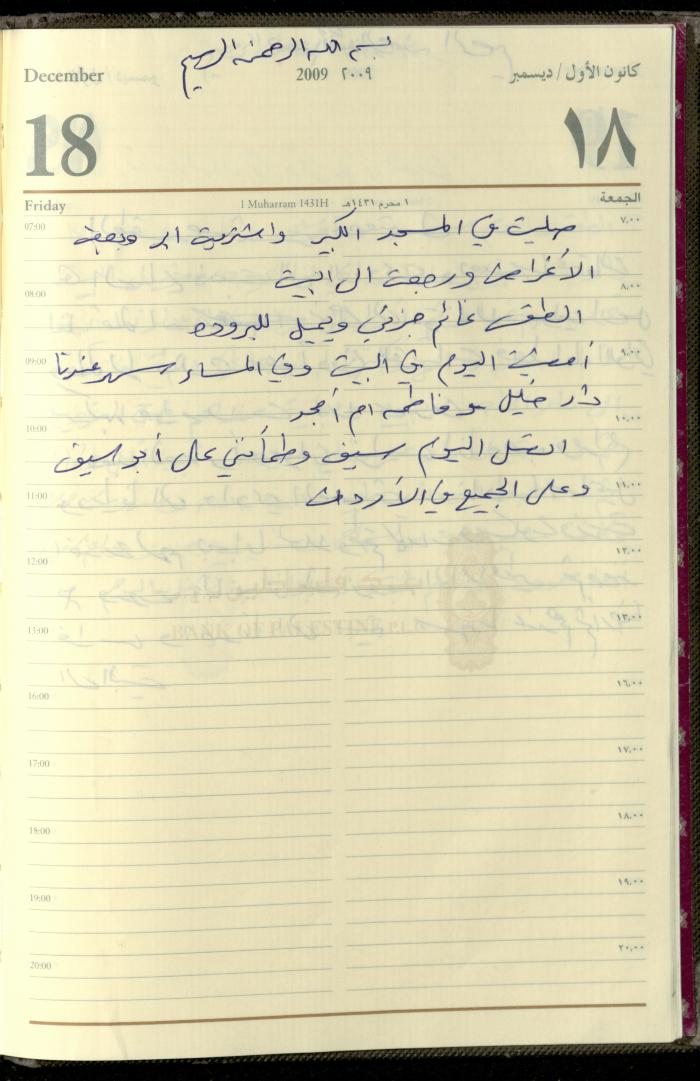 بسم الله الرحمن الرحيم
December 2009 ٢٠٠٩ كانون الأول / ديسمبر
18 ١٨
Friday 1 Muharram 1431H ١ محرم ١٤٣١هـ الجمعة
07:00 ٧,٠٠
صليت في المسجد الكبير واشتريت
الأغراض ورجعت الى البيت
08:00 ٨,٠٠
الطقس غائم جزئي ويميل للبروده
09:00 ٩,٠٠
أمضيت اليوم في البيت وفي المساء سهر عندنا
دار خليل وفاطمه ام أمجد
10:00 ١٠,٠٠
اتصل اليوم سيف وطمأنني على أبو سيف
11:00 ١١,٠٠
وعلى الجميع في الأردن
12:00 ١٢,٠٠
BANK OF PALESTINE
13:00 ١٣,٠٠
16:00 ١٦,٠٠
17:00 ١٧,٠٠
18:00 ١٨,٠٠
19:00 ١٩,٠٠
20:00 ٢٠,٠٠